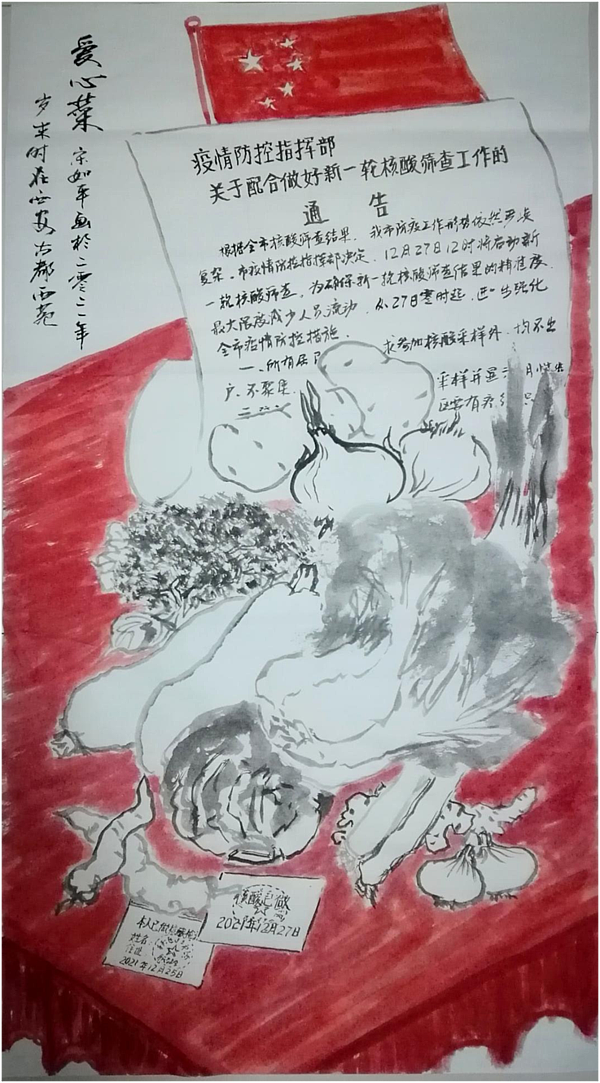 爱心菜 宗如军画於二零二一年
岁末时在西安古都西苑
疫情防控指挥部
关于配合做好新一轮核酸筛查工作的
通 告
根据全市核酸筛查结果，我市防疫工作形势依然严峻
复杂。市疫情防控指挥部决定，12月27日12时将启动新
一轮核酸筛查。为确保新一轮核酸筛查结果的精准度，
最大限度减少人员流动，从27日零时起，进一步强化
全市疫情防控措施。
一、所有居 求参加核酸采样外，均不出
户、不聚集 采样并显
二
核酸已做
2021年12月27日
本人已
姓名
2021年12月25日